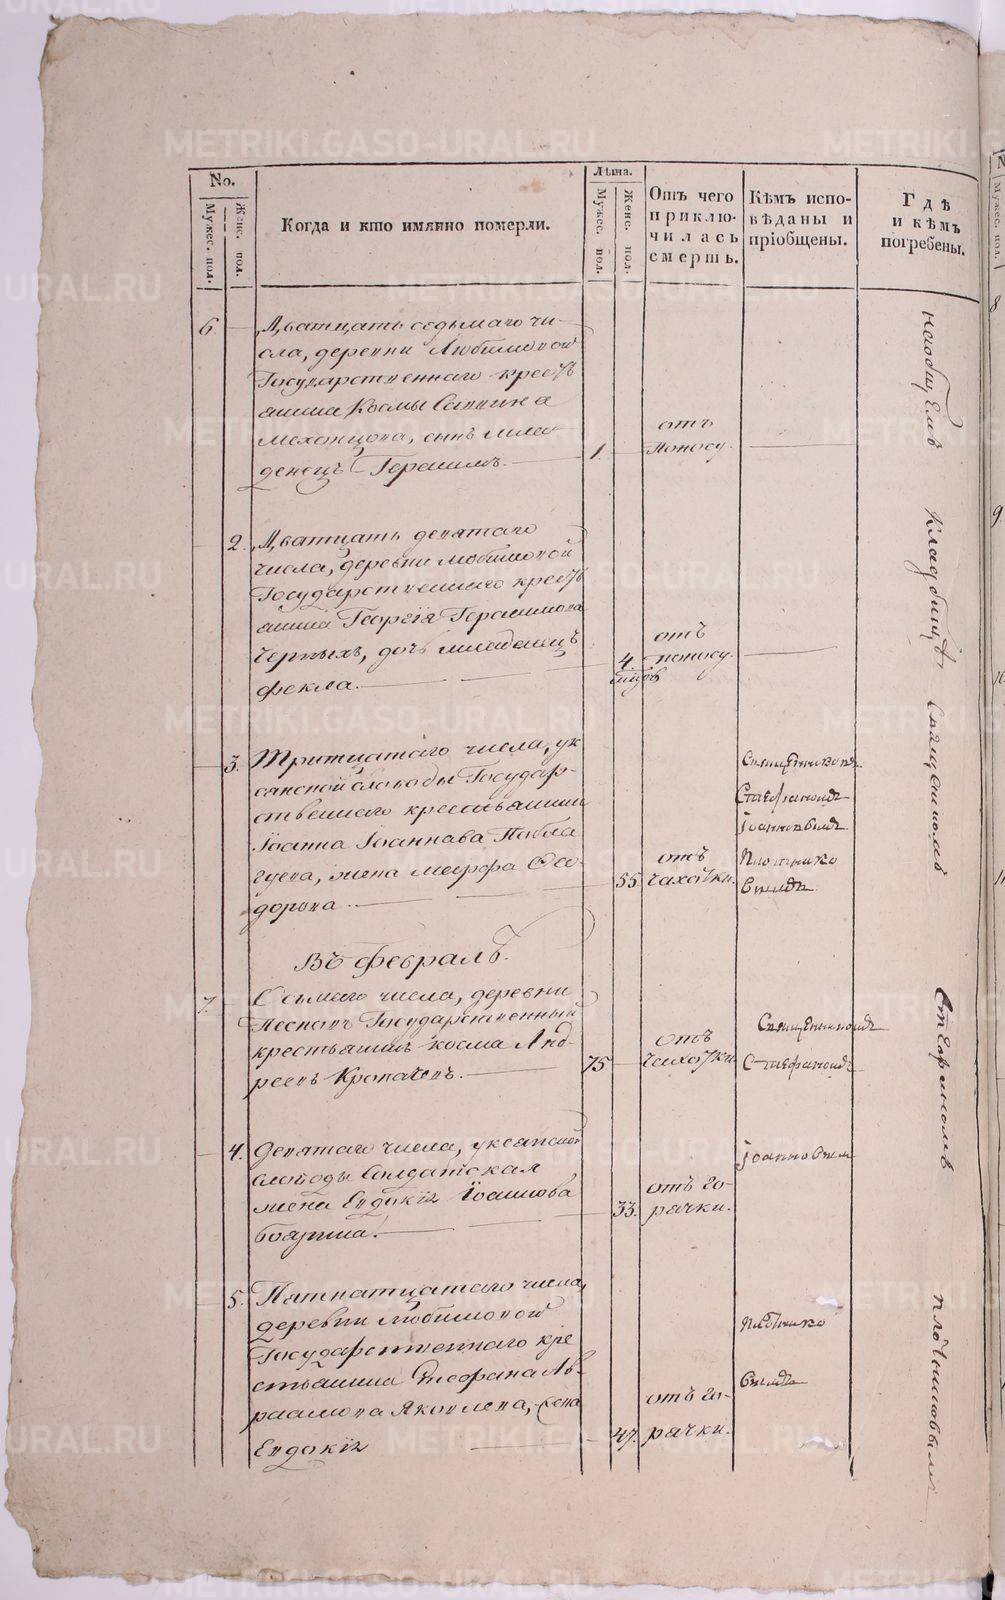 No.
Мужес. пол.
Женс. пол.
Когда и кто имянно померли.
Лѣта.
Мужес. пол.
Женс. пол.
Отъ чего
приклю-
чилась
смерть.
Кѣмъ испо-
вѣданы и
пріобщены.
Гдѣ
и кѣмъ
погребены.
6.
Дватцать седьмаго чи-
сла, деревни Любимовой
Государственнаго кресть
янина Космы Саввина
сынъ мла-
денецъ Герасимъ.
1.
отъ
поносу.
2.
Дватцать девятаго
числа, деревни Любимовой
Государственнаго кресть
янина Георгія Герасимова
Черныхъ, дочь младенецъ
Фекла.
4.
мцовъ
отъ
поносу.
3.
Тритцатаго числа, Ук
сянской слободы Государ-
ственнаго крестьянина
Іоанна Іоаннава
жена Марфа Ѳео-
дорова
55.
отъ
чахотки.
Священникомъ
Стефаномъ
Іоанновымъ
Плотнико
вымъ
Въ Февралѣ.
7.
Седьмаго числа, деревни
Государственный
крестьянинъ Косма Анд-
реевъ
75
отъ
чахотки
Священникомъ
Стефаномъ
4.
Девятаго числа, Уксянской
слободы Салдатская
жена Евдокія Іоаннова
33.
отъ го-
рячки.
Іоанновым
5.
Пятнатцатаго числа,
деревни Любимовой
Государственнаго кре
стьянина Стефана Ав-
раамова Яковлева, жена
Евдокія
47.
отъ го-
рячки.
Плотнико
вымъ
на общемъ
кладбищѣ,
Священникомъ
Стефаномъ
Плотниковымъ
METRIKI.GASO-URAL.RU